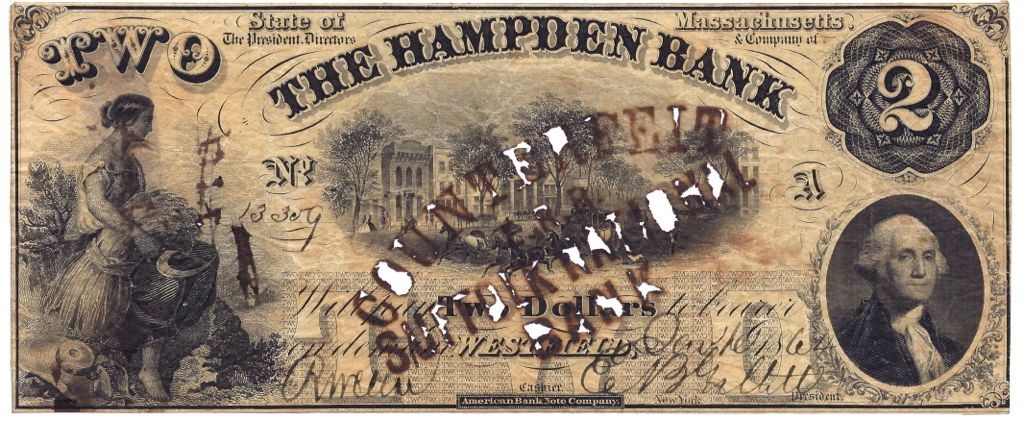 TWO
State of Massachusetts
The President, Directors & Company of
THE HAMPDEN BANK
2
No.
A
COUNTERFEIT
SUFFOLK
BANK
Will pay Two Dollars to bearer
on demand WESTFIELD,
Cashier.
President.
American Bank Note Company.
New York